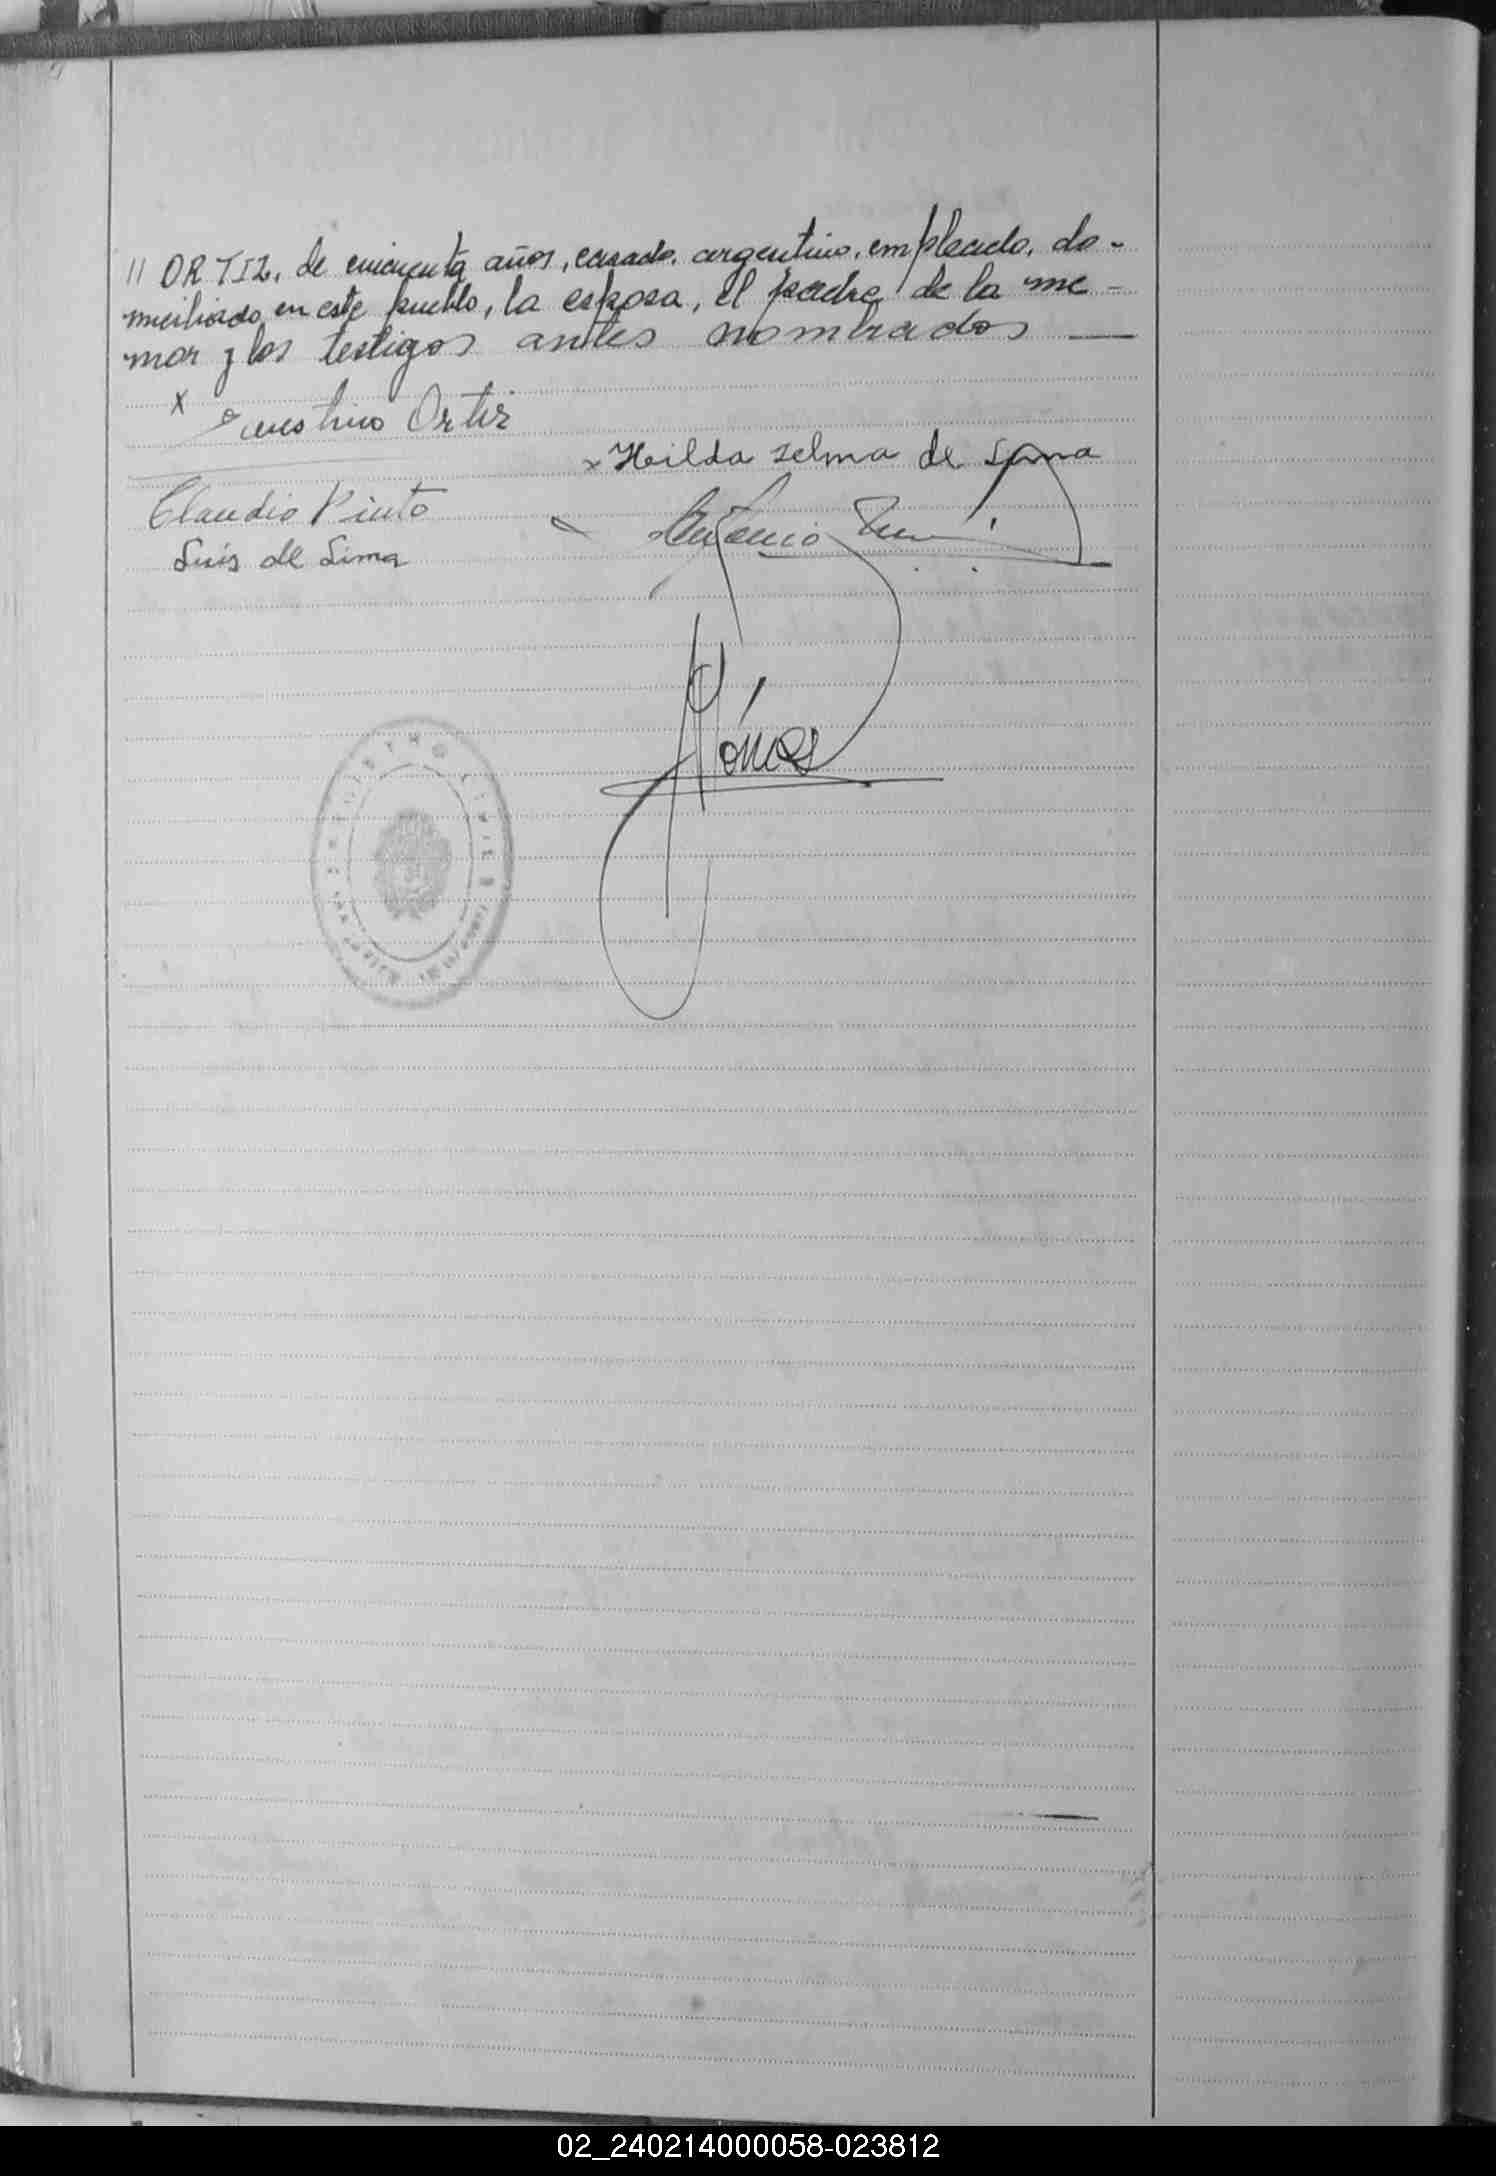 // ORTIZ, de cincuenta años, casado, argentino, empleado, do-
miciliado en este pueblo, la esposa, el padre de la me-
nor y los testigos antes nombrados —
x Faustino Ortiz
x Hilda Zelma de
Claudio Pinto
Antonio
Luis de Lima
REGISTRO CIVIL
02_240214000058-023812